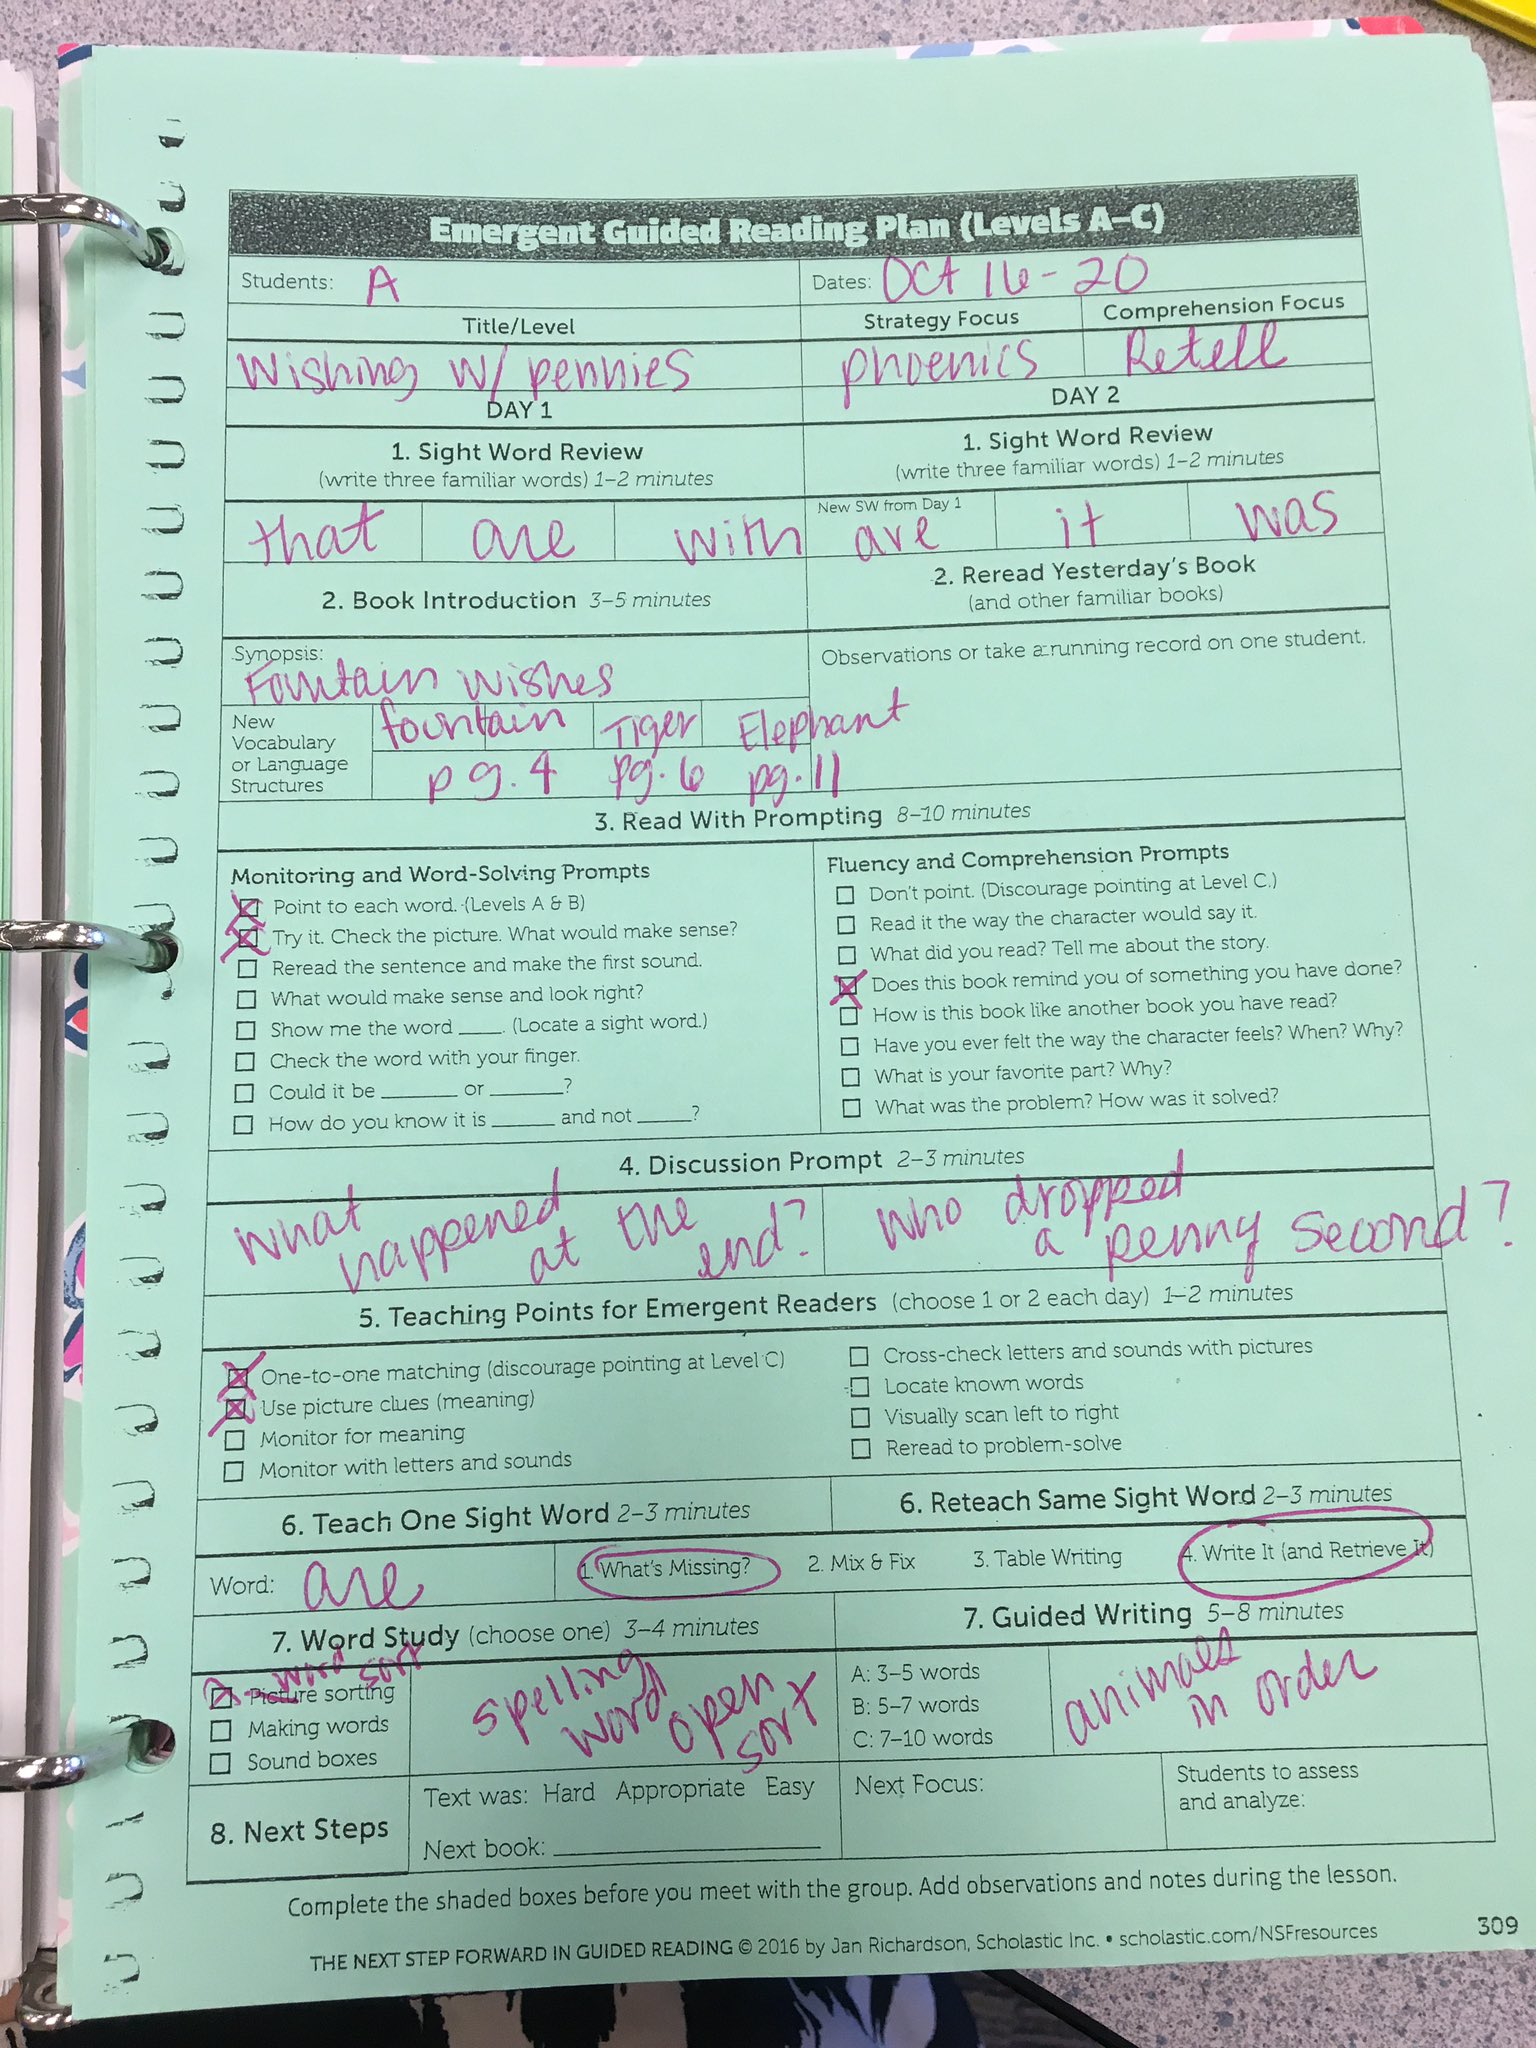 Emergent Guided Reading Plan (Levels A–C)
Students: A
Dates: Oct 16-20
Title/Level
Strategy Focus
Comprehension Focus
Wishing w/ pennies
phoenics
Retell
DAY 1
DAY 2
1. Sight Word Review
(write three familiar words) 1–2 minutes
1. Sight Word Review
(write three familiar words) 1–2 minutes
that are with
New SW from Day 1
are it was
2. Book Introduction 3–5 minutes
2. Reread Yesterday's Book
(and other familiar books)
Synopsis:
Fountain wishes
Observations or take a running record on one student.
New
Vocabulary
or Language
Structures
fountain Tiger Elephant
pg. 4 pg. 6 pg. 11
3. Read With Prompting 8–10 minutes
Monitoring and Word-Solving Prompts
Point to each word. (Levels A & B)
Try it. Check the picture. What would make sense?
Reread the sentence and make the first sound.
What would make sense and look right?
Show me the word ____. (Locate a sight word.)
Check the word with your finger.
Could it be _______ or _______?
How do you know it is ______ and not _____?
Fluency and Comprehension Prompts
Don't point. (Discourage pointing at Level C.)
Read it the way the character would say it.
What did you read? Tell me about the story.
Does this book remind you of something you have done?
How is this book like another book you have read?
Have you ever felt the way the character feels? When? Why?
What is your favorite part? Why?
What was the problem? How was it solved?
4. Discussion Prompt 2–3 minutes
what
happened
at the
end?
who dropped
a penny second?
5. Teaching Points for Emergent Readers (choose 1 or 2 each day) 1–2 minutes
One-to-one matching (discourage pointing at Level C)
Use picture clues (meaning)
Monitor for meaning
Monitor with letters and sounds
Cross-check letters and sounds with pictures
Locate known words
Visually scan left to right
Reread to problem-solve
6. Teach One Sight Word 2–3 minutes
6. Reteach Same Sight Word 2–3 minutes
Word: are
1. What's Missing?
2. Mix & Fix
3. Table Writing
4. Write It (and Retrieve It)
7. Word Study (choose one) 3–4 minutes
7. Guided Writing 5–8 minutes
word sort
Picture sorting
Making words
Sound boxes
spelling
word
open
sort
A: 3–5 words
B: 5–7 words
C: 7–10 words
animals
in order
8. Next Steps
Text was: Hard Appropriate Easy
Next book: ____________________
Next Focus:
Students to assess
and analyze:
Complete the shaded boxes before you meet with the group. Add observations and notes during the lesson.
THE NEXT STEP FORWARD IN GUIDED READING © 2016 by Jan Richardson, Scholastic Inc. • scholastic.com/NSFresources
309